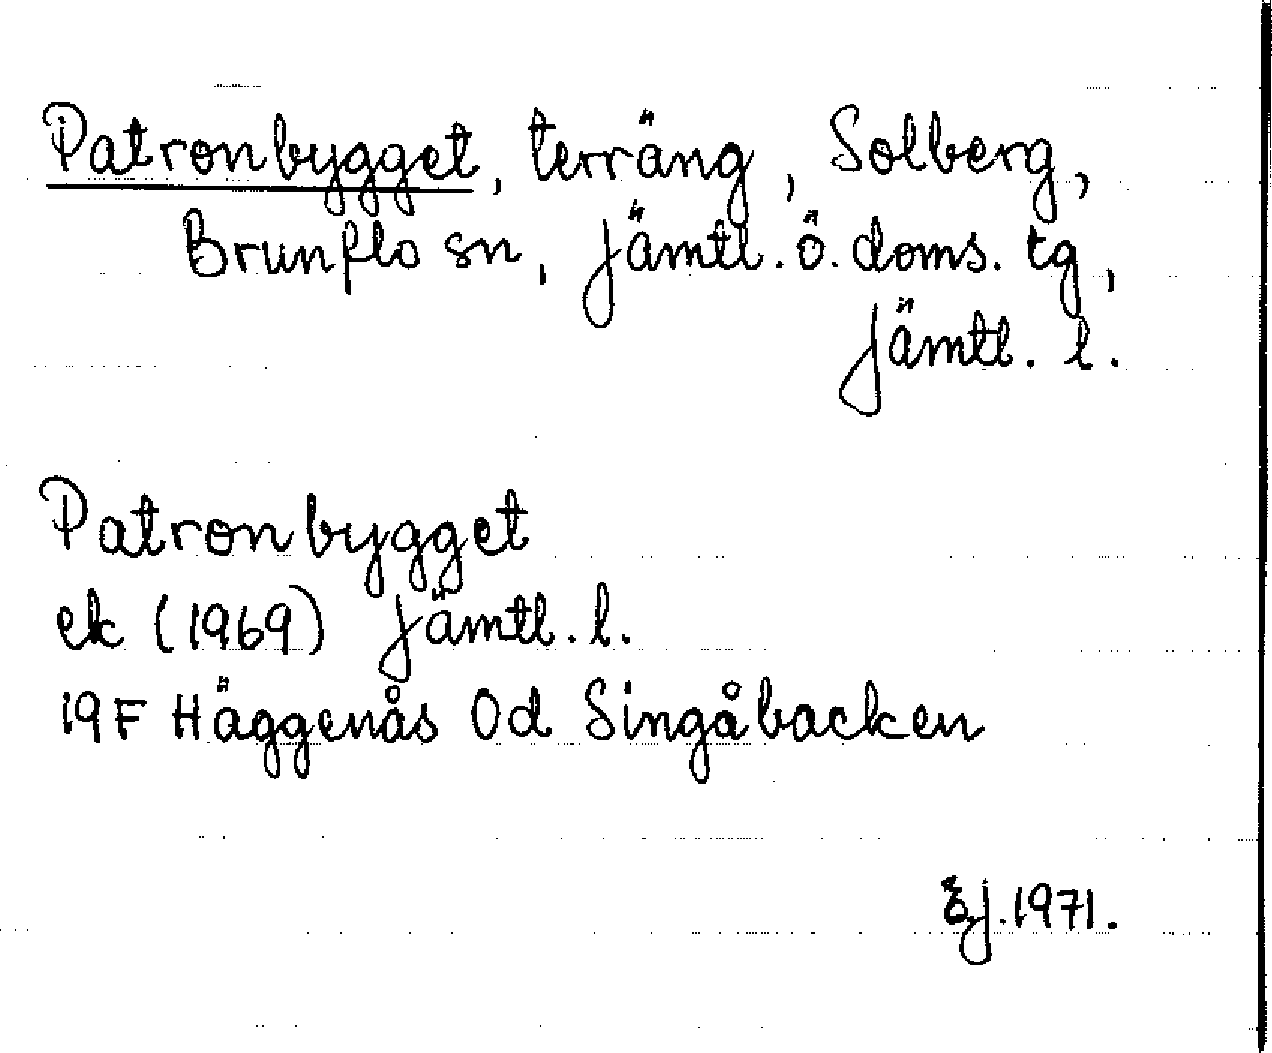 Patronbygget, terräng, Solberg,
Brunflo sn, Jämtl. ö. doms. tg,
Jämtl. l.
Patronbygget
ek (1969) Jämtl. l.
19F Häggenås 0d Singåbacken
1971.